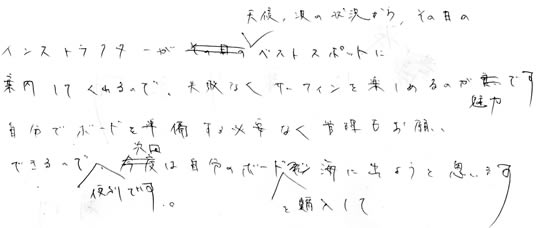 天候、波の状況から、その日の
インストラクターが その日の ベストスポットに
案内してくれるので、失敗なくサーフィンを楽しめるのが です
魅力
自分でボードを準備する必要なく管理もお願い
次回
できるので 今度は自分のボード 海に出ようと思います
便利です。 を購入して